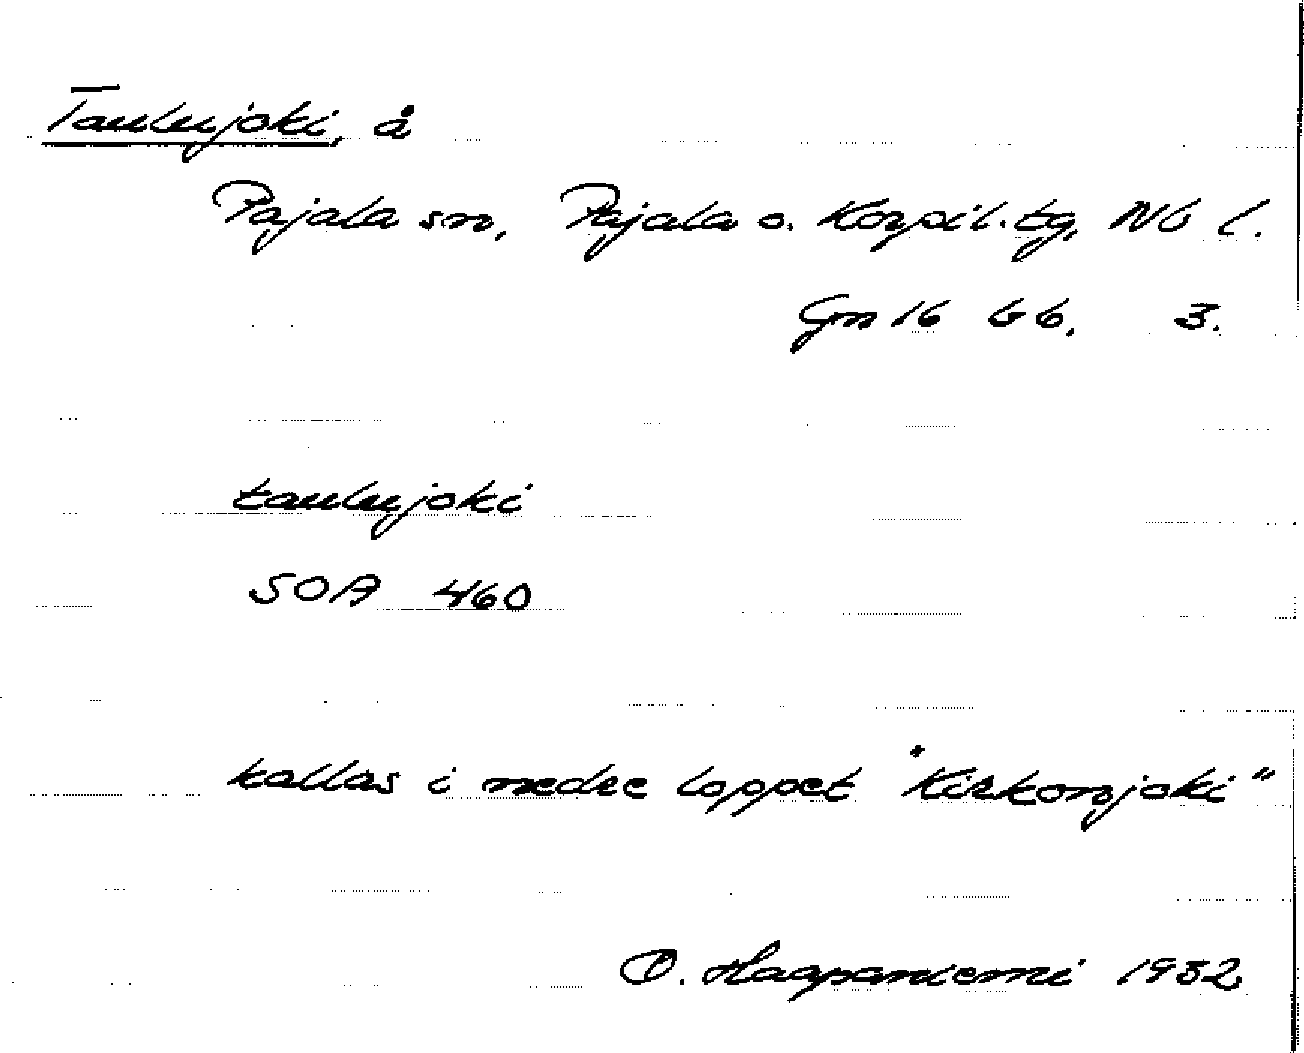 Taulujoki, å
Pajala sn, Pajala o. Korpil. tg, Nb l.
Gn 16 66. 3.
taulujoki
SOA 460
kallas i nedre loppet "Kirkonjoki"
O. Haapaniemi 1932